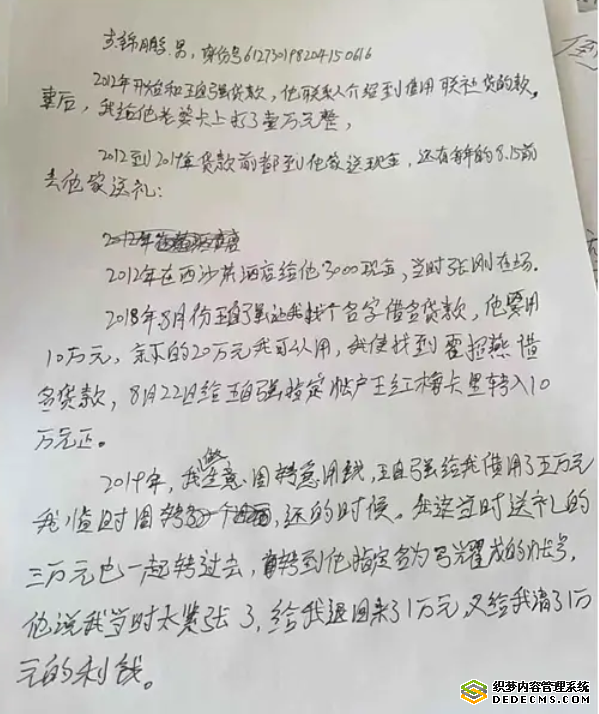 锦鹏,男,身份号612730198204150616
2012年开始和王自强贷款,他联系人介绍到信用联社贷的款,
事后,我给他老婆卡上打了壹万元整,
2012到2019年贷款前都到他家送现金,还有每年的8.15前
去他家送礼:
2012年
2012年在西沙 酒店给他3000现金,当时张刚在场.
2018年8月份王自强让我找个名字借名贷款,他要用
10万元,余下的20万元我可以用,我便找到霍招燕借
名贷款,8月22日给王自强指定账户王红梅卡里转入10
万元正。
2019年,我做生意周转急用钱,王自强给我借用了五万元
我临时周转,还的时候。我把当时送礼的
三万元也一起转过去,转到他指定名为弓光耀成的账号,
他说我当时太紧张了,给我退回来了1万元,又给我清了1万
元的利钱。
织梦内容管理系统
DEDECMS.COM